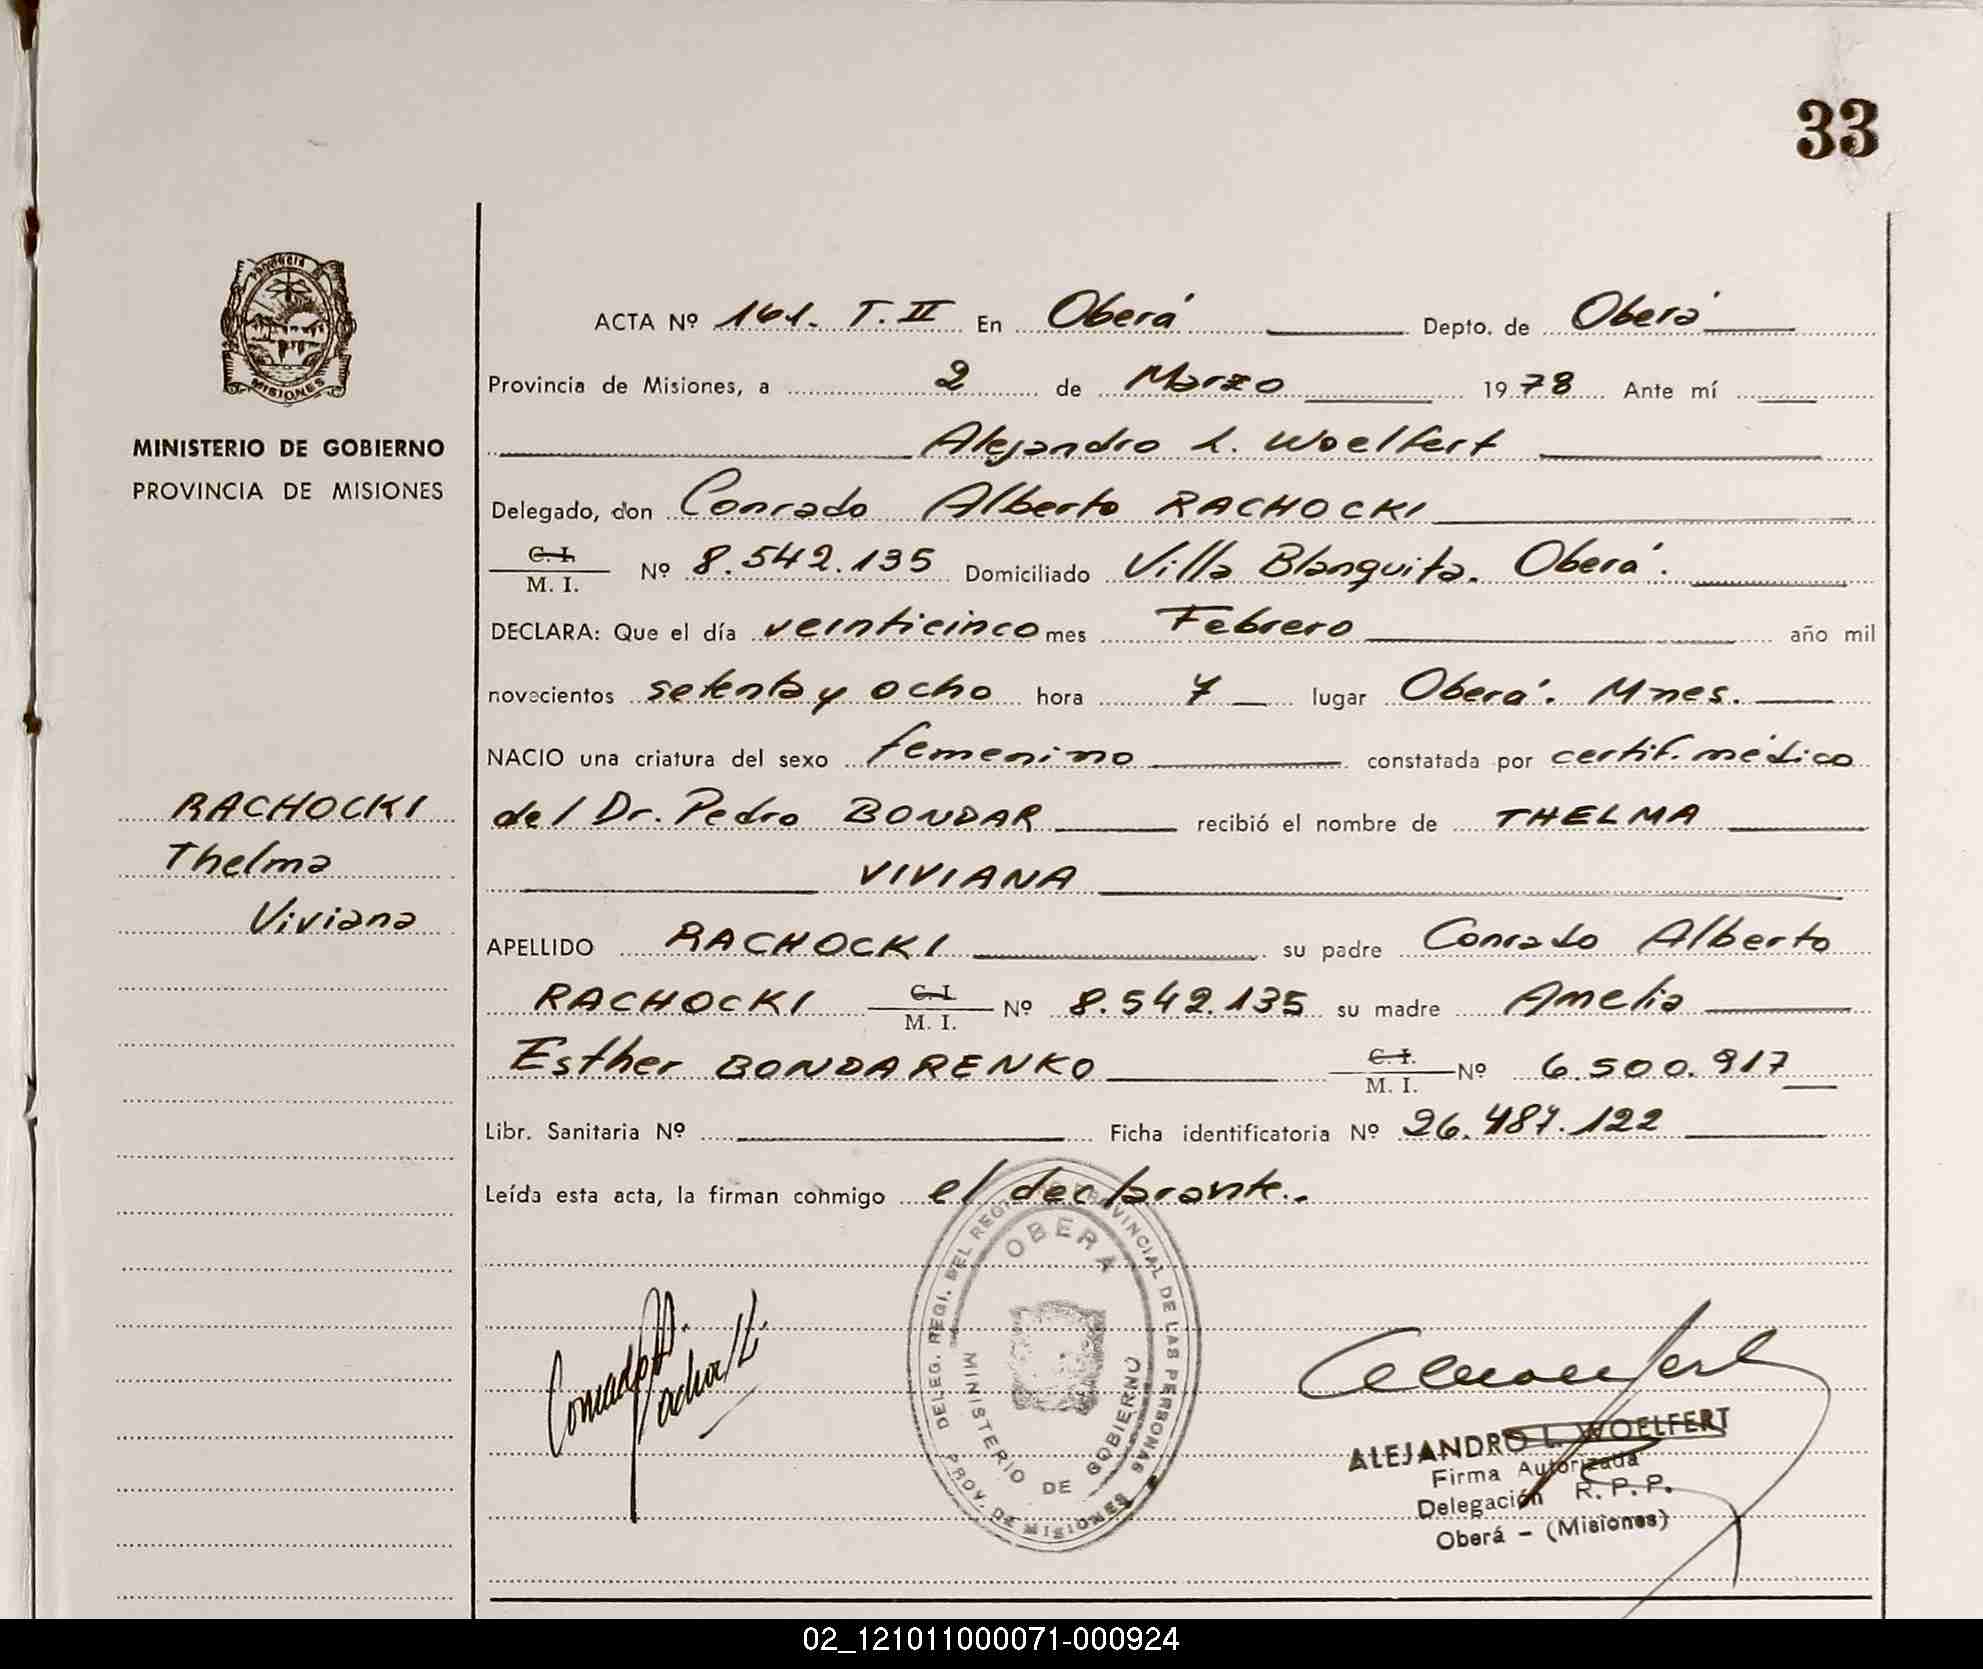 33
PROVINCIA DE
MISIONES
MINISTERIO DE GOBIERNO
PROVINCIA DE MISIONES
RACHOCKI
Thelma
Viviana
ACTA Nº 161. T. II En Oberá Depto. de Oberá
Provincia de Misiones, a 2 de Marzo 1978 Ante mí
Alejandro L. Woelfert
Delegado, don Conrado Alberto RACHOCKI
C. I.
M. I. Nº 8.542.135 Domiciliado Villa Blanquita. Oberá.
DECLARA: Que el día veinticinco mes Febrero año mil
novecientos setenta y ocho hora 7 lugar Oberá. Mnes.
NACIO una criatura del sexo femenino constatada por certif. médico
del Dr. Pedro BONDAR recibió el nombre de THELMA
VIVIANA
APELLIDO RACHOCKI su padre Conrado Alberto
RACHOCKI C. I. M. I. Nº 8.542.135 su madre Amelia
Esther BONDARENKO C. I. M. I. Nº 6.500.917
Libr. Sanitaria Nº Ficha identificatoria Nº 26.487.122
Leída esta acta, la firman conmigo el declarante.
DELEG. REGI. DEL REGISTRO PROVINCIAL DE LAS PERSONAS
OBERÁ
MINISTERIO DE GOBIERNO
PROV. DE MISIONES
Conrado A. Rachocki
ALEJANDRO L. WOELFERT
Firma Autorizada
Delegación R. P. P.
Oberá - (Misiones)
02_121011000071-000924